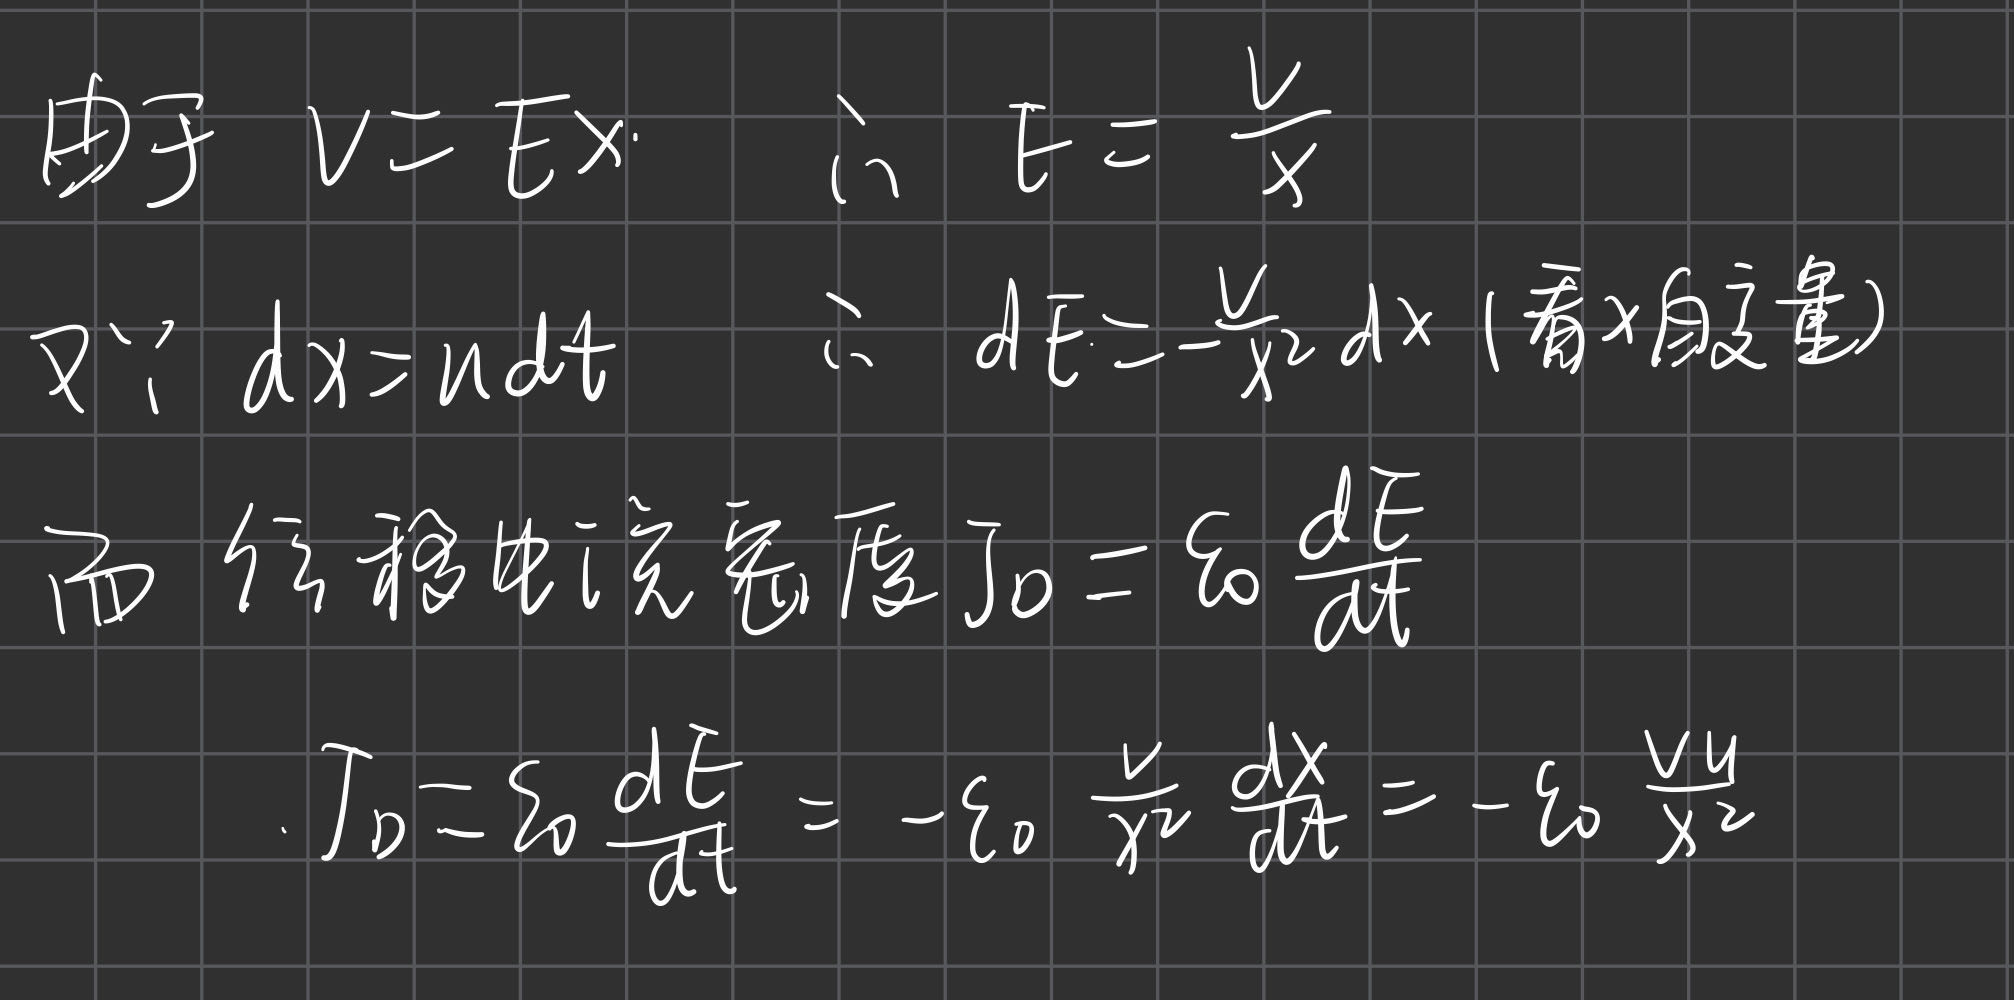 由于 V=Ex. ∴ E = V/x
又∵ dx=udt ∴ dE=-V/x² dx (看x自变量)
而位移电流密度 J_D = ε₀ dE/dt
J_D = ε₀ dE/dt = -ε₀ V/x² dx/dt = -ε₀ Vu/x²